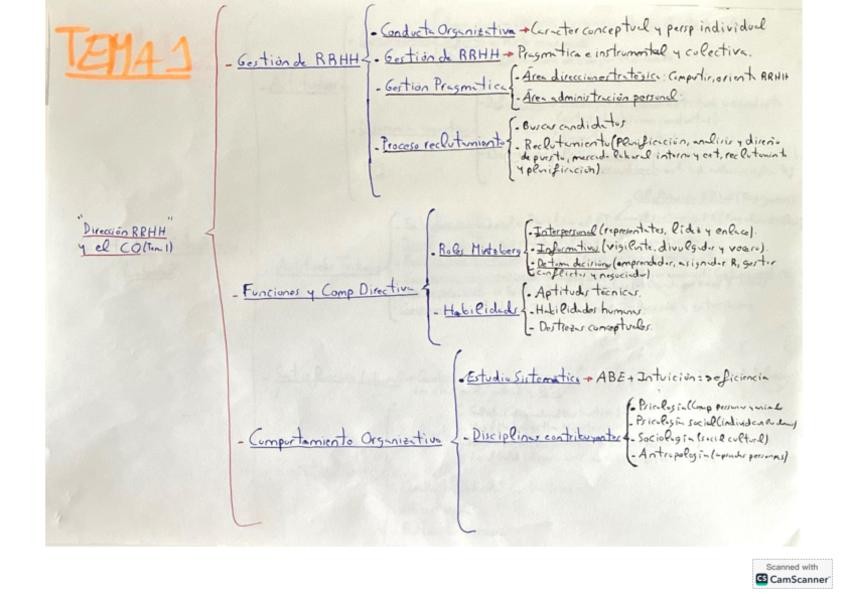 TEMA 1
"Dirección RRHH"
y el CO (Tem. 1)
- Gestión de RRHH
• Conducta Organizativa → Caracter conceptual y persp individual
- Gestión de RRHH → Pragmática e instrumental y colectiva.
- Gestión Pragmática
- Área dirección estratégica: Competir, orient RRHH
- Área administración personal:
• Proceso reclutamiento
- Buscar candidatos
- Reclutamiento (planificación, analisis y diseño
de puesto, mercado laboral interno y ext, reclutamient
y planificación).
- Funciones y Comp Directiva
- Roles Mintzberg
- Interpersonal (representates, lider y enlace).
- Informativa (vigilante, divulgador y vocero).
- De toma decisión (emprendedor, asignador R, gestor
conflictos y negociador)
- Habilidads
- Aptitudes técnicas.
- Habilidades humans
- Destrezas conceptuales.
- Comportamiento Organizativo
• Estudio Sistemático → ABE + Intuición: > eficiencia
- Disciplinas contribuyentes
- Psicología (Comp
- Psicología social
- Sociología (social cultural)
- Antropología ( personas)
Scanned with
CS CamScanner